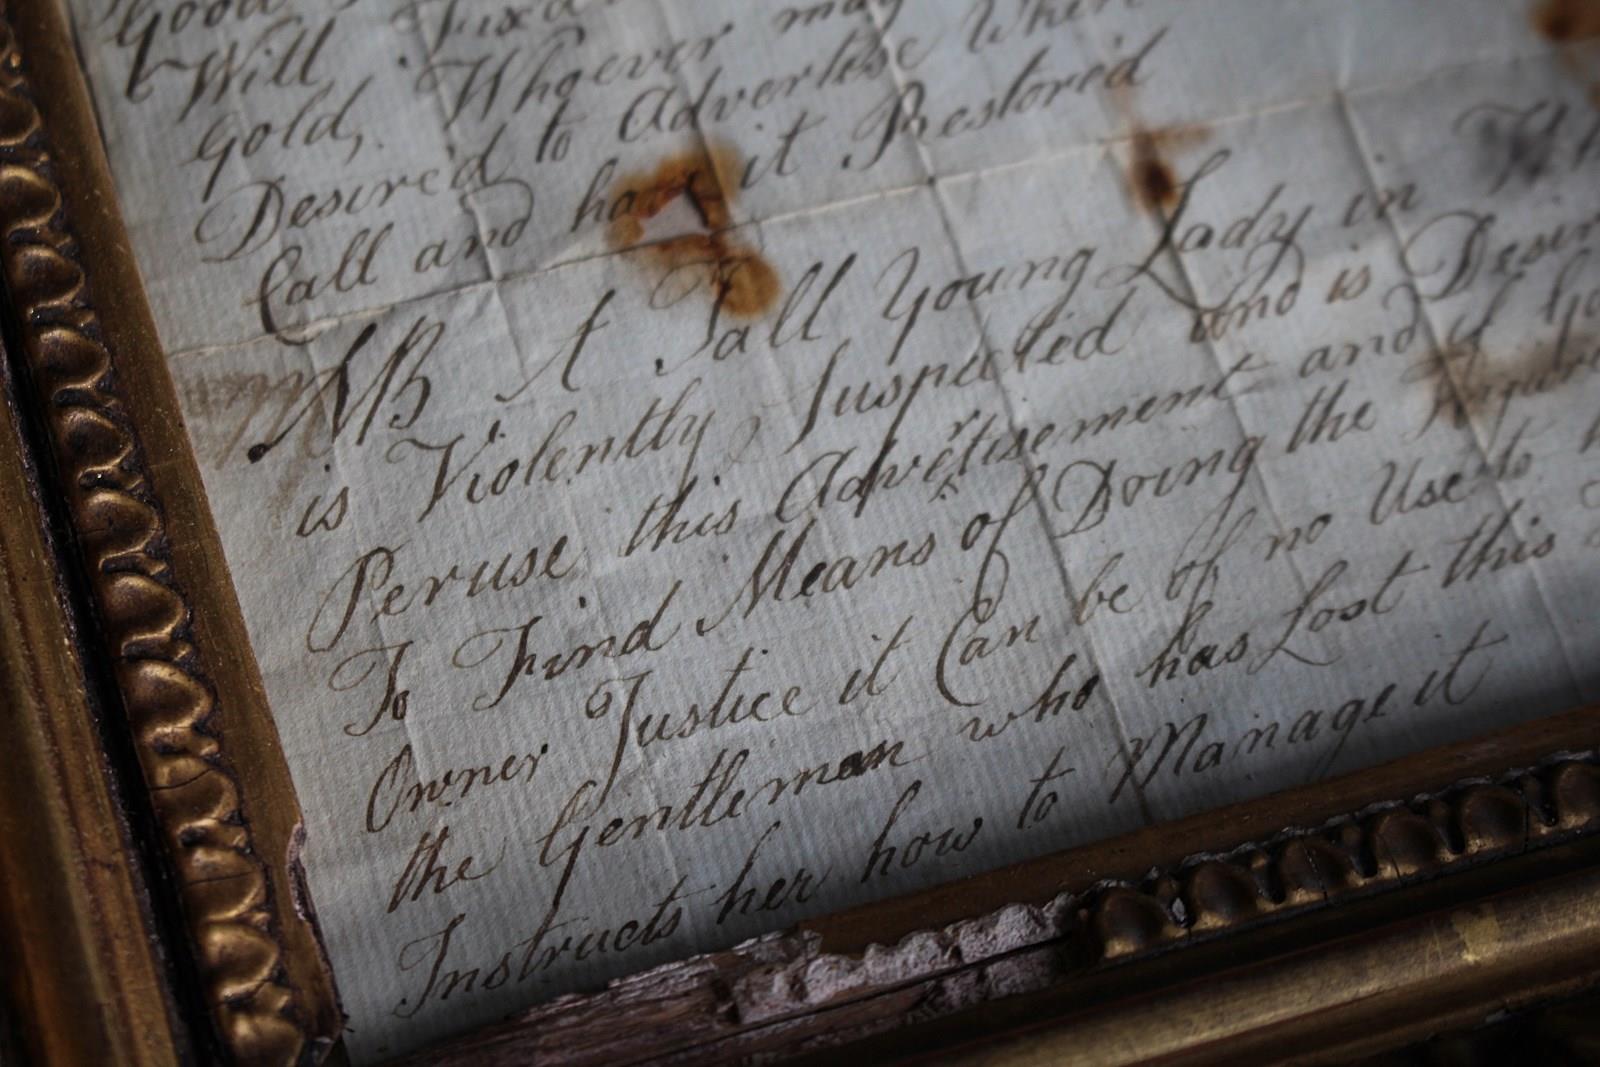 Good
& Will Fixd
Gold, Whoever may
Desire'd to Advertise Where
Call and have it Restored
NB A Tall Young Lady in
is Violently Suspected and is Desir
Peruse this Advertisement and if
To Find Means of Doing the
Owner Justice it Can be of no Use to
the Gentleman who has Lost this
Instructs her how to Manage it